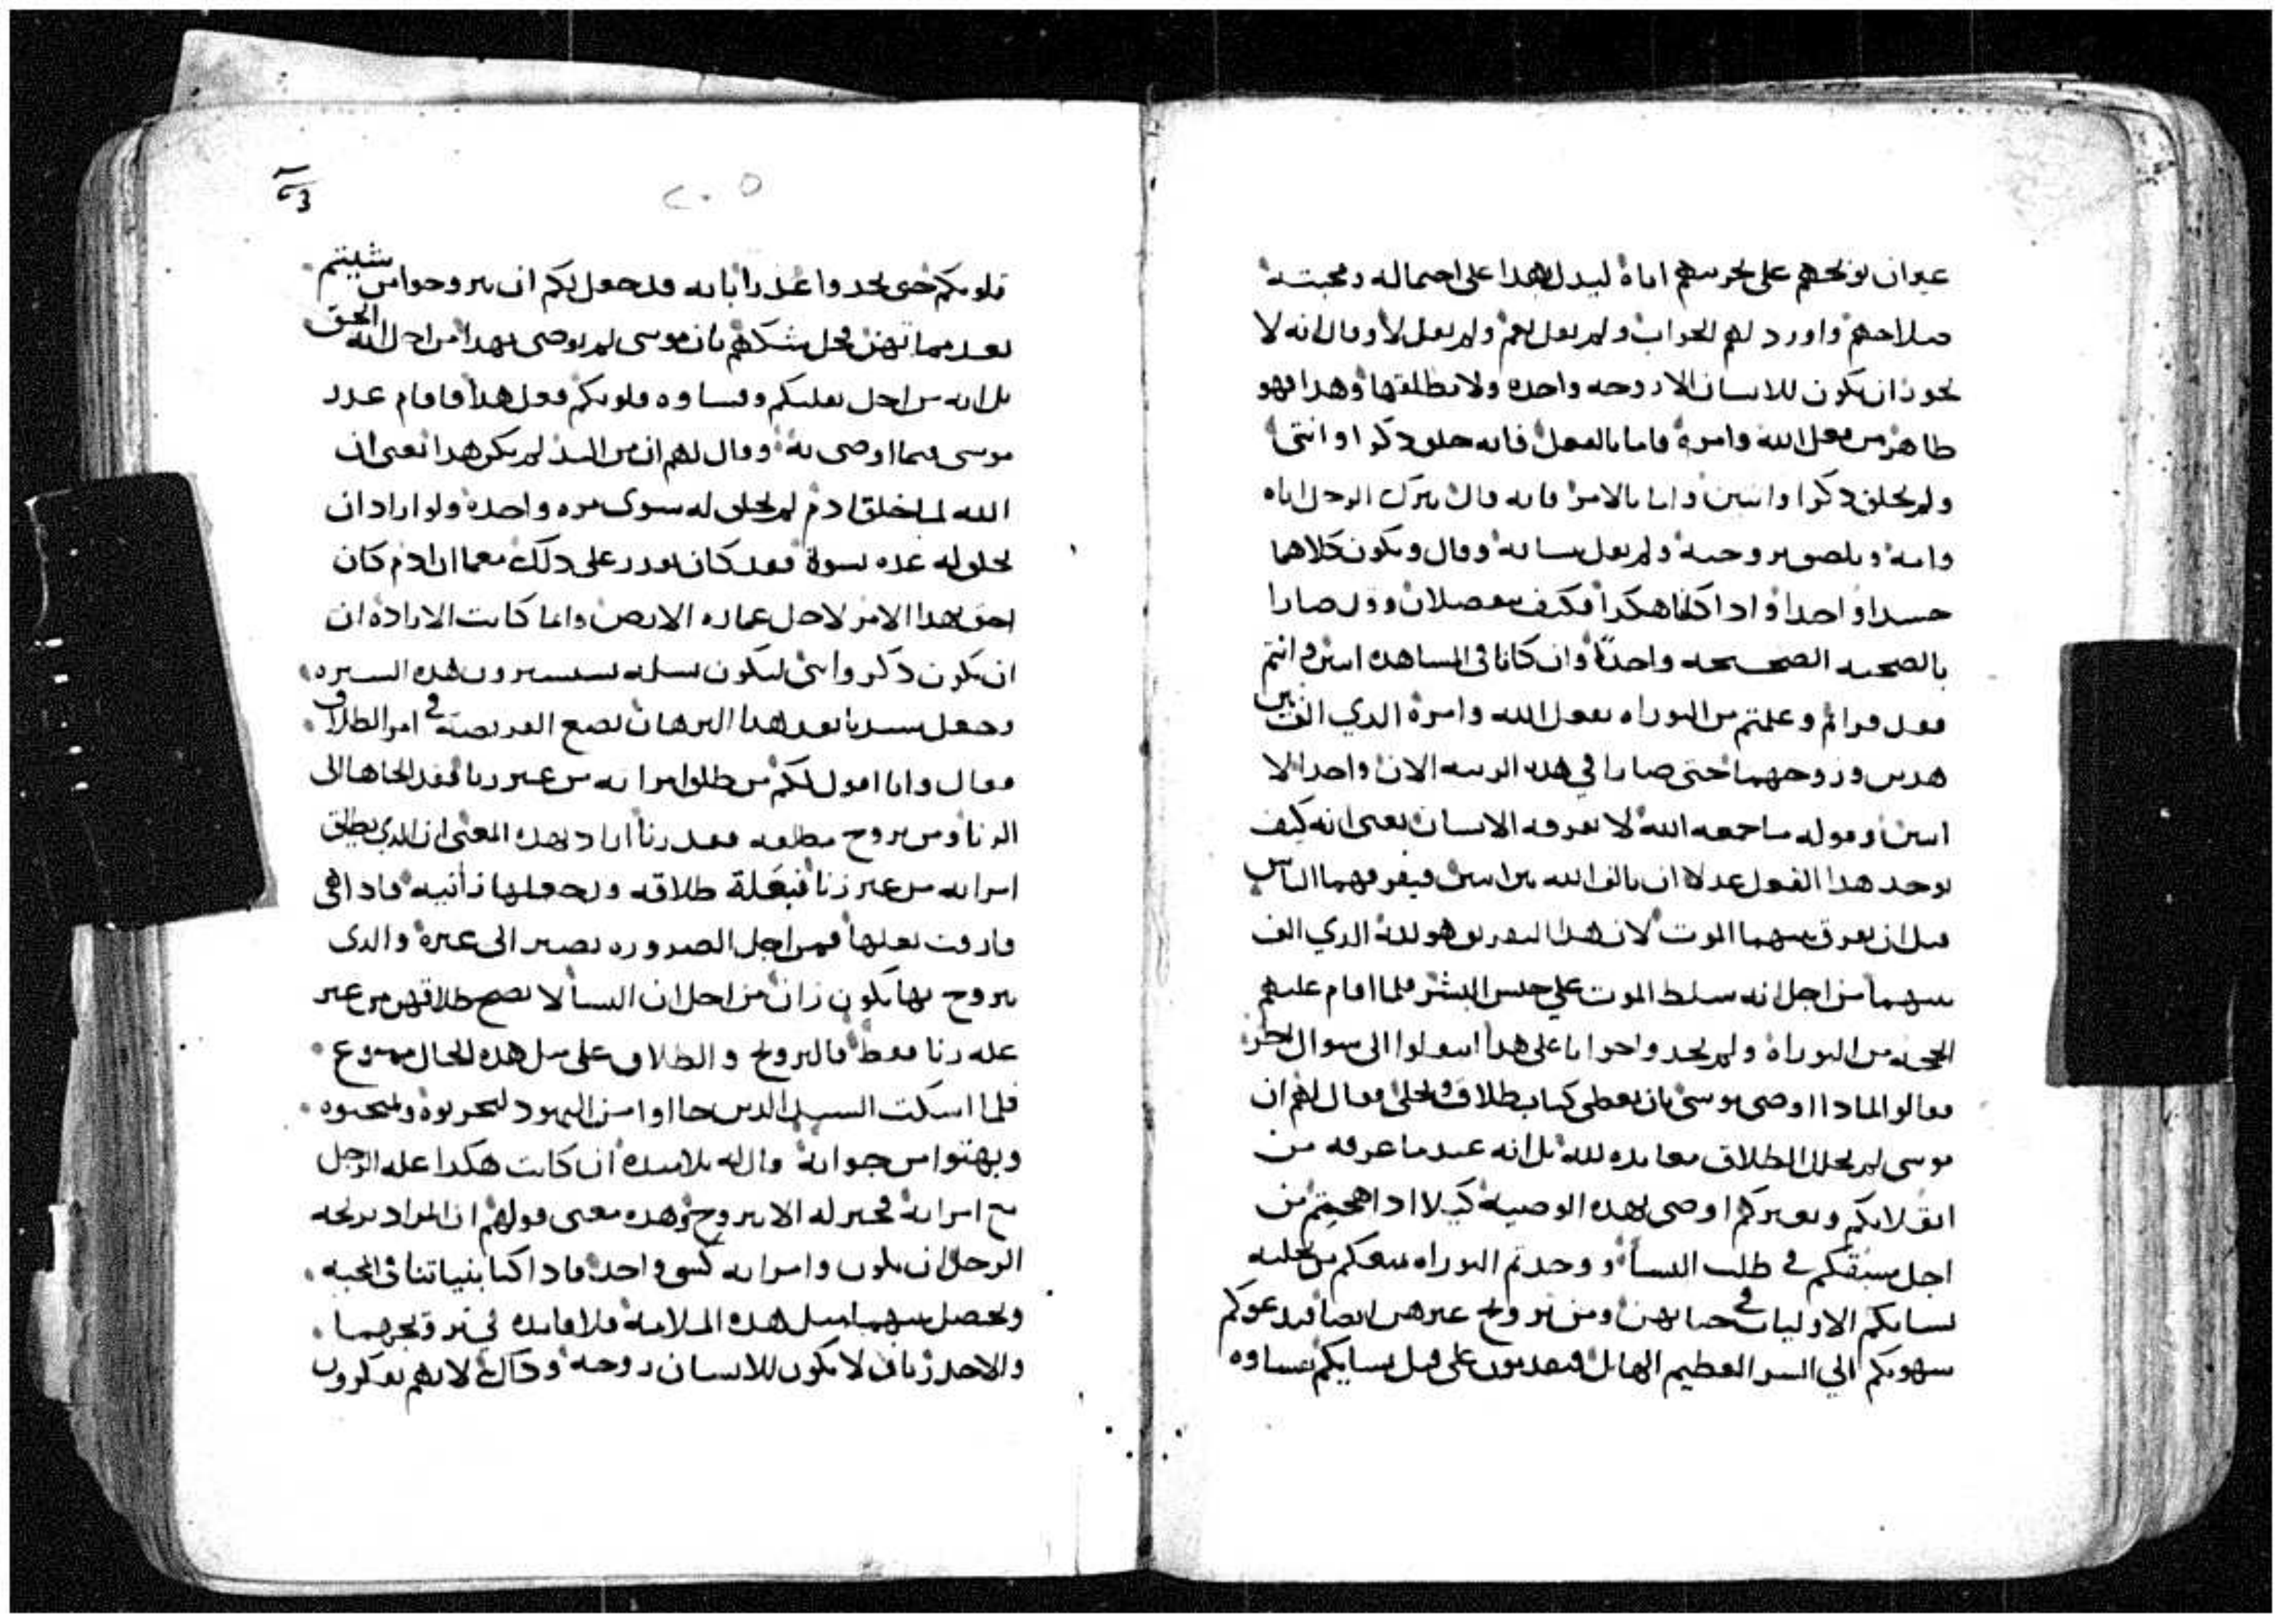 غير ان يوبخهم على تجربتهم اياه ليدل بهذا على احتماله ومحبته
صلاحهم واورد لهم الجواب ولم يقل نعم ولم يقل لا وقال انه لا
يجوز ان يكون للانسان الا زوجه واحده ولا يطلقها وهذا فهو
ظاهر من فعل الله وامره فاما بالفعل فانه خلق ذكرا وانثى
ولم يخلق ذكرا واثنتين واما بالامر فانه قال يترك الرجل اباه
وامه ويلصق بزوجته ولم يقل بنسائه وقال ويكون كلاهما
جسدا واحدا واذا كانا هكذا فكيف ينفصلان وقد صارا
بالصحبه الصحيحه واحدا وان كانا في المشاهده اثنين وانتم
فقد قراتم وعلمتم من التوراه بفعل الله وامره الذي الف بين
هذين وزوجهما حتى صارا في هذه الرتبه الان واحدا لا
اثنين وقوله ما جمعه الله لا يفرقه الانسان يعنى انه كيف
يوجد هذا الفعل عدلا ان يالف الله بين اثنين فيفرقهما الناس
قبل ان يفرق بينهما الموت لان هذا التفريق هو لله الذي الف
بينهما من اجل انه سلط الموت علي جنس البشر فلما اقام عليهم
الحجه من التوراه ولم يجدوا جوابا على هذا انتقلوا الى سوال اخر
فقالوا لماذا اوصى موسى بان يعطى كتاب طلاق وتخلى فقال لهم ان
موسى لم يحلل الطلاق معانده لله بل انه عندما عرفه من
انقلابكم وتغيركم اوصى بهذه الوصيه كيلا اذا هجتم من
اجل شبقكم في طلب النسا ووجدتم التوراه تمنعكم من تخليه
نسايكم الاوليات في حياتهن ومن تزويج غيرهن ايضا فيدعوكم
شهوتكم الي الشر العظيم الهايل فتعدمون على قتل نسايكم بقساوه
قلوبكم حتى تجدوا عذرا بانه قد جعل لكم ان تتزوجوا من شيتم
بعد مماتهن فحل شكهم بان موسى لم يوصى بهذا من اجل انه الحق
بل انه من اجل تقلبكم وقساوه قلوبكم فعل هذا فاقام عذر
موسى فيما اوصى به وقال لهم ان من البدا لم يكن هذا يعنى ان
الله لما خلق ادم لم يخلق له سوى مره واحده ولو اراد ان
يخلق له عده نسوة فقد كان يقدر على ذلك مع ما ان ادم كان
احق بهذا الامر لاجل عماره الارض وانما كانت الاراده ان
ان يكون ذكر وانثى ليكون نسله يسيرون هذه السيره
وجعل سيدنا بعد هذا البرهان يضع الفريضه في امر الطلاق
فقال وانا اقول لكم من طلق امراته من غير زنا فقد الجاها الى
الزنا ومن تزوج مطلقه فقد زنا اراد بهذه المعنى ان الذي يطلق
امراته من غير زنا فبعلة طلاقه يجعلها زانيه فاذا هى
فارقت بعلها فمن اجل الضروره تصير الى غيره والذى
يتزوج بها يكون زان من اجل ان النسا لا يصح طلاقهن من غير
عله زنا فقط فالتزويج والطلاق على مثل هذه الحال ممنوع
فلما اسكت السيد الذين جااوا من اليهود ليجربوه ويمتحنوه
وبهتوا من جوابه قال له تلاميذه ان كانت هكذا عله الرجل
مع امراته فخير له الا يتزوج وهذه معنى قولهم ان المراد بزيجه
الرجل ان يكون وامراته كشى واحد فاذا كنا بنياتنا في المحبه
ويحصل بينهما مثل هذه الملامه فلا فايده في تزويجهما
والاحد زمان لا يكون للانسان زوجه وذاك لانهم تفكروا